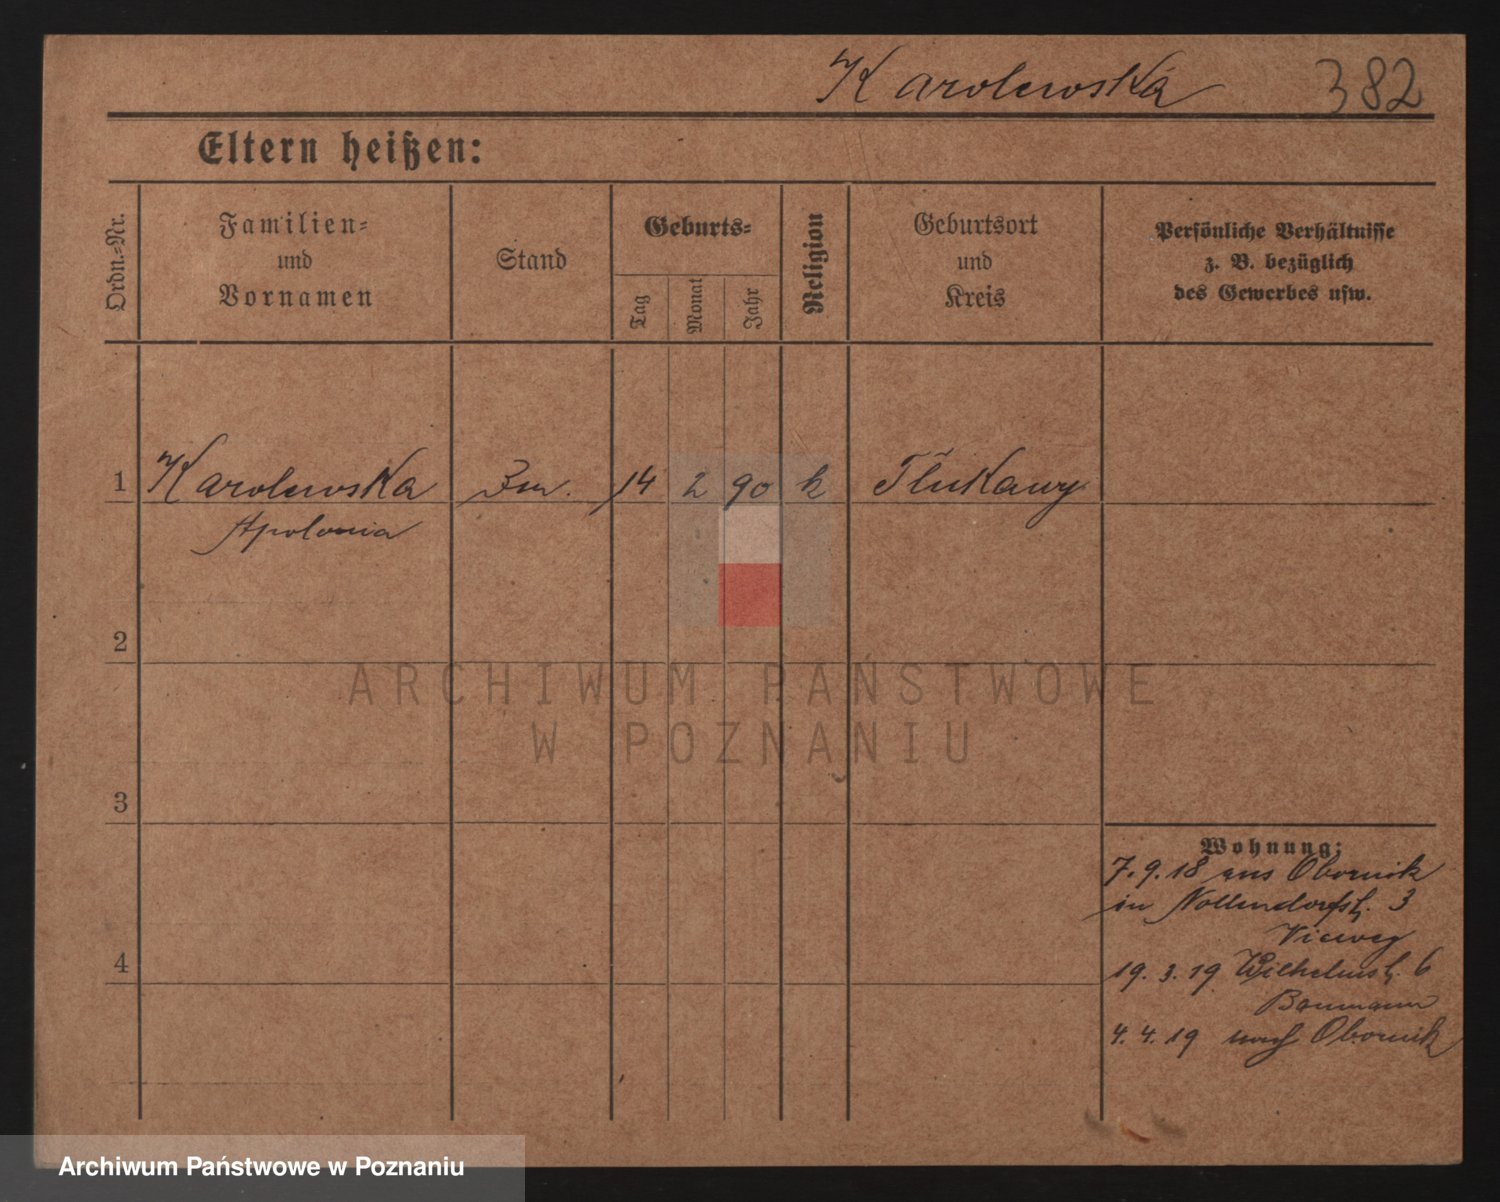 Karolewska 382
Eltern heißen:
Ordn.-Nr.
Familien-
und
Vornamen
Stand
Geburts-
Tag
Monat
Jahr
Religion
Geburtsort
und
Kreis
Persönliche Verhältnisse
z. B. bezüglich
des Gewerbes usw.
1 Karolewska 14 2 90 k Tlukawy
Apolonia
2
3
4
Wohnung:
7. 9. 18 aus Obornik
in Nollendorfst. 3
Vieweg
19. 3. 19 Wilhelmst. 6
Baumann
4. 4. 19 nach Obornik
ARCHIWUM PAŃSTWOWE
W POZNANIU
Archiwum Państwowe w Poznaniu